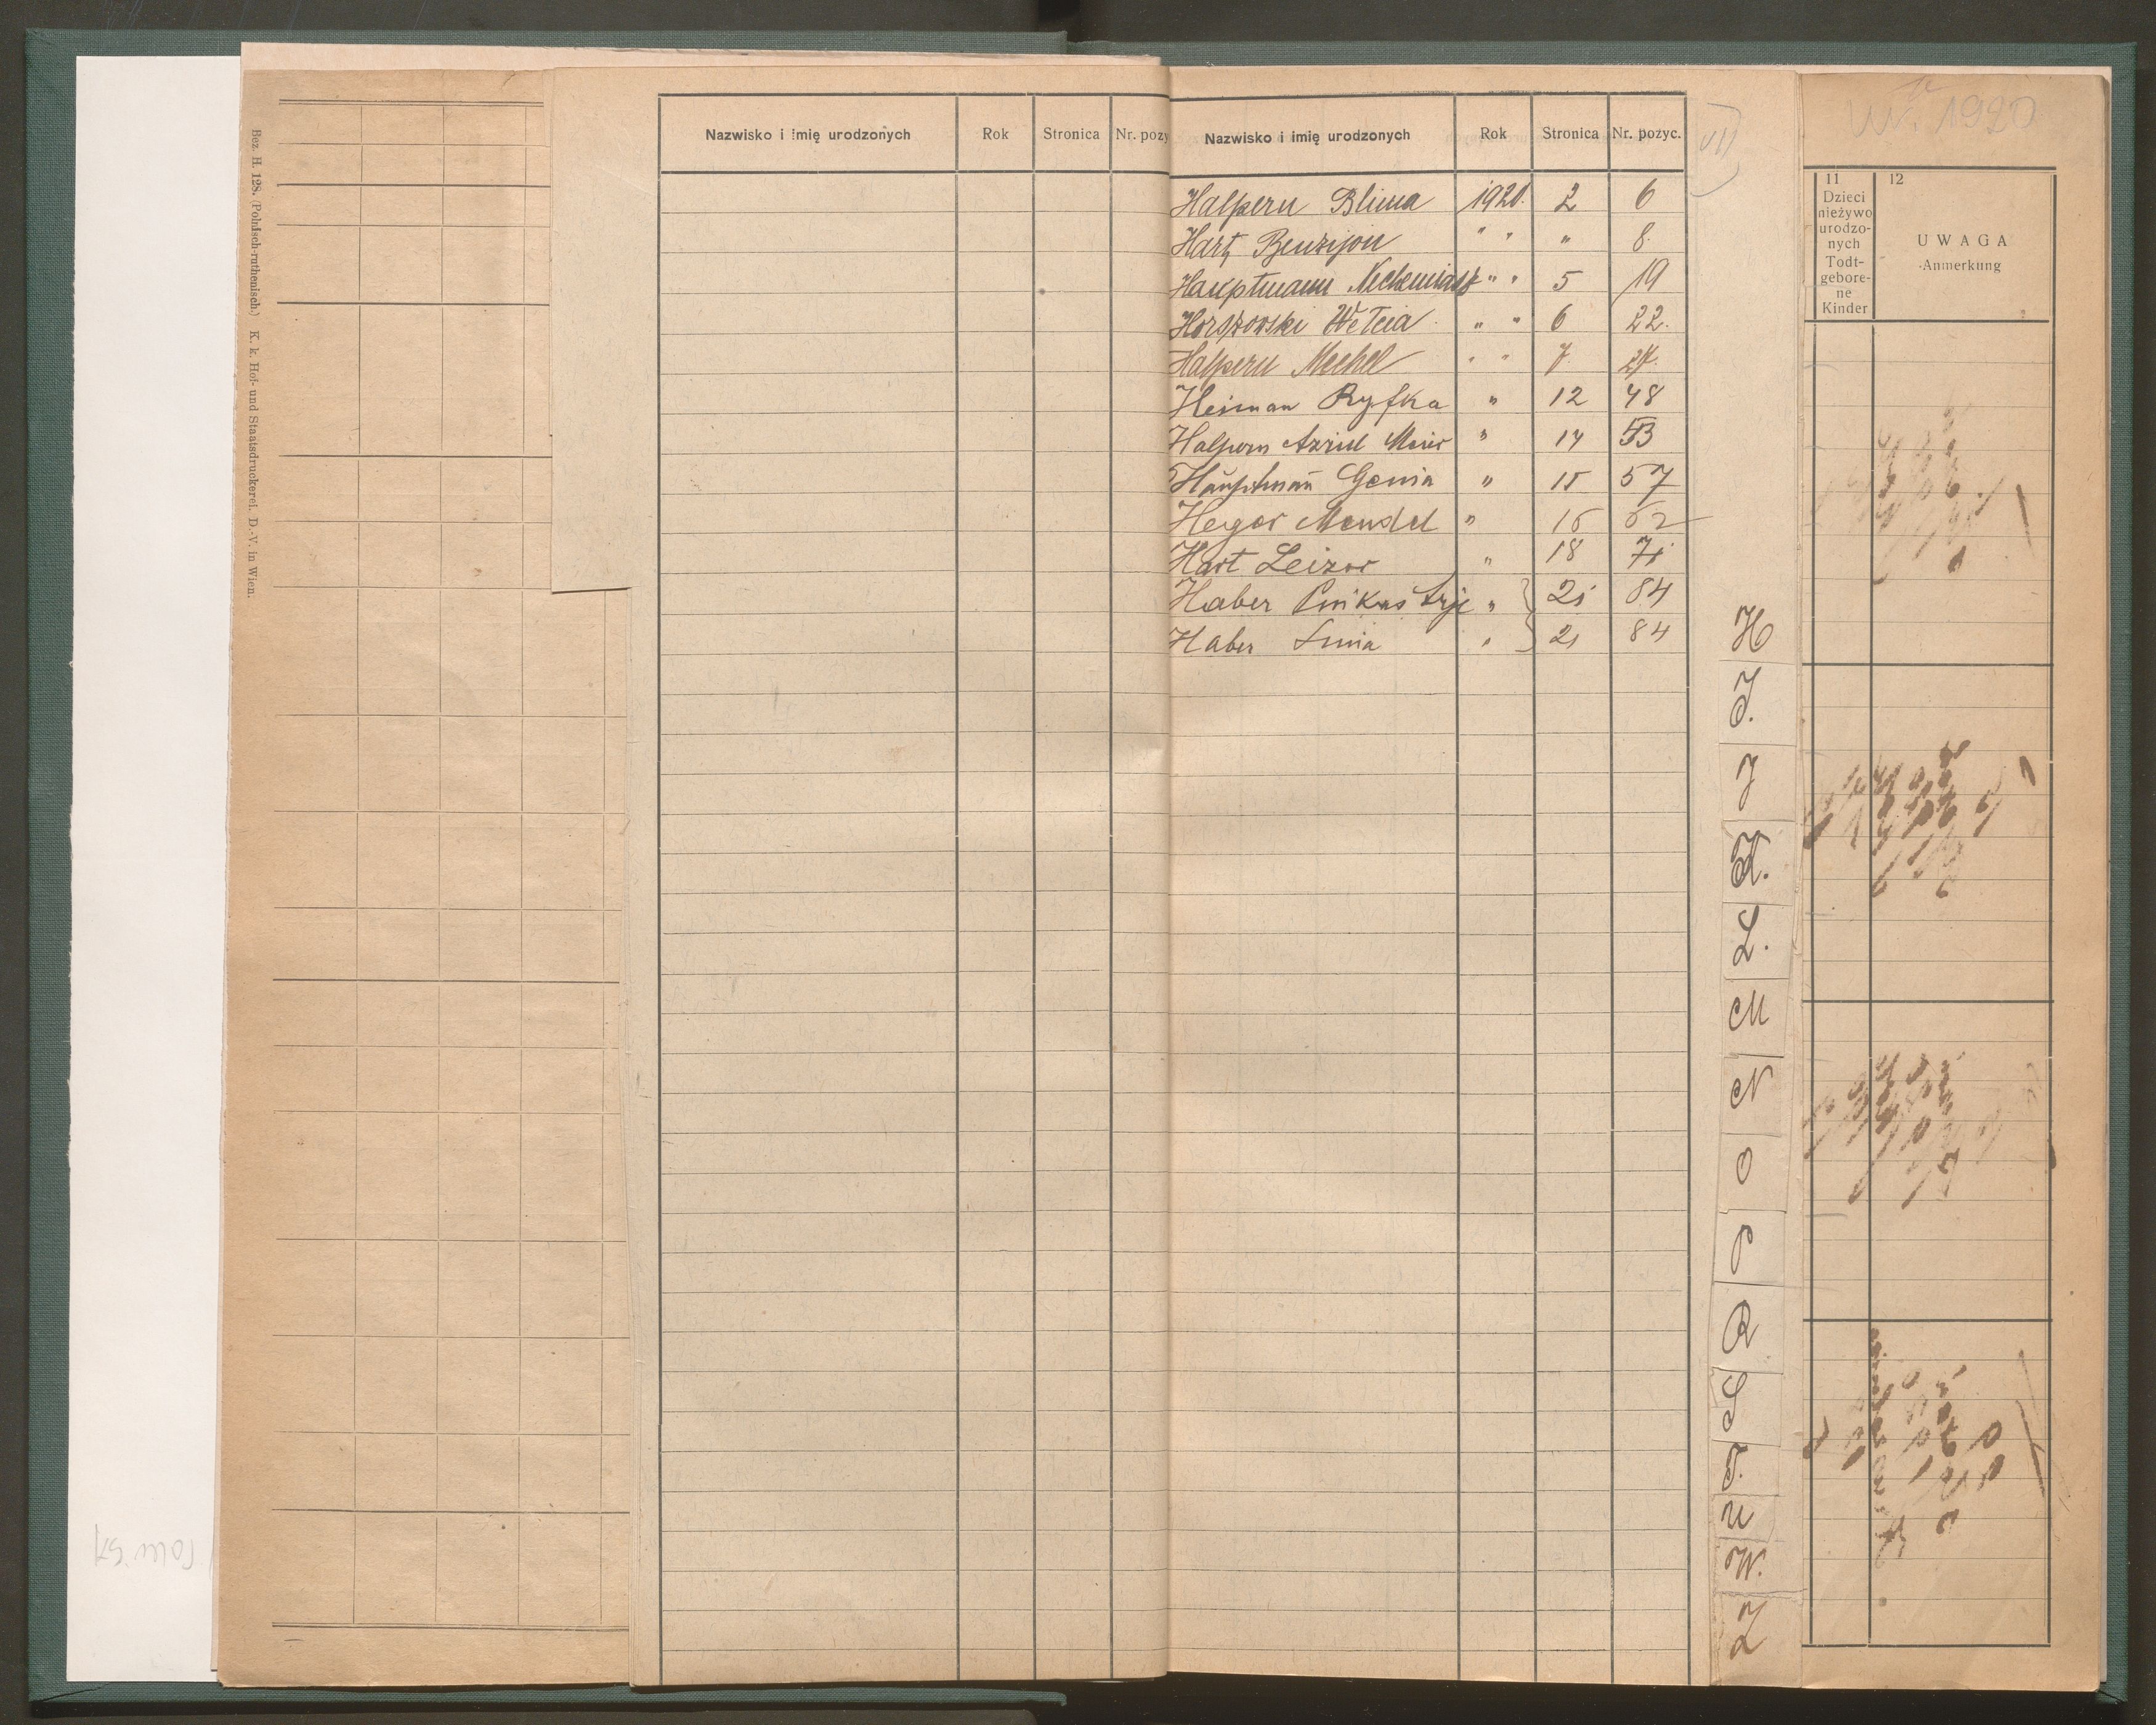 Bez. H. 128. (Polnisch-ruthenisch.) K. k. Hof- und Staatsdruckerei. D.-V. in Wien.
Nazwisko i imię urodzonych Rok Stronica Nr. pozy
Nazwisko i imię urodzonych Rok Stronica Nr. pozyc.
Halpern Blima 1920. 2 6
Hart Benzijon " " " 8.
Hauptmann Nechemiasz " " 5 19
Horszowski " " 6 22.
Halpern Mechel " " 7. 27.
Heiman Ryfka " 12 48
Halpern Azriel Meier " 14 53
Hauptman Genia " 15 57
Heger Mendel " 16 62
Hart Leizor " 18 71
Haber Pinkas Arje " 21 84
Haber " 21 84
VII
H
I.
J
K.
L.
M
N
O
P
R
S
T.
U
W.
Z
1920
11 12
Dzieci
nieżywo
urodzo-
nych
Todt-
gebore-
ne
Kinder
UWAGA
Anmerkung